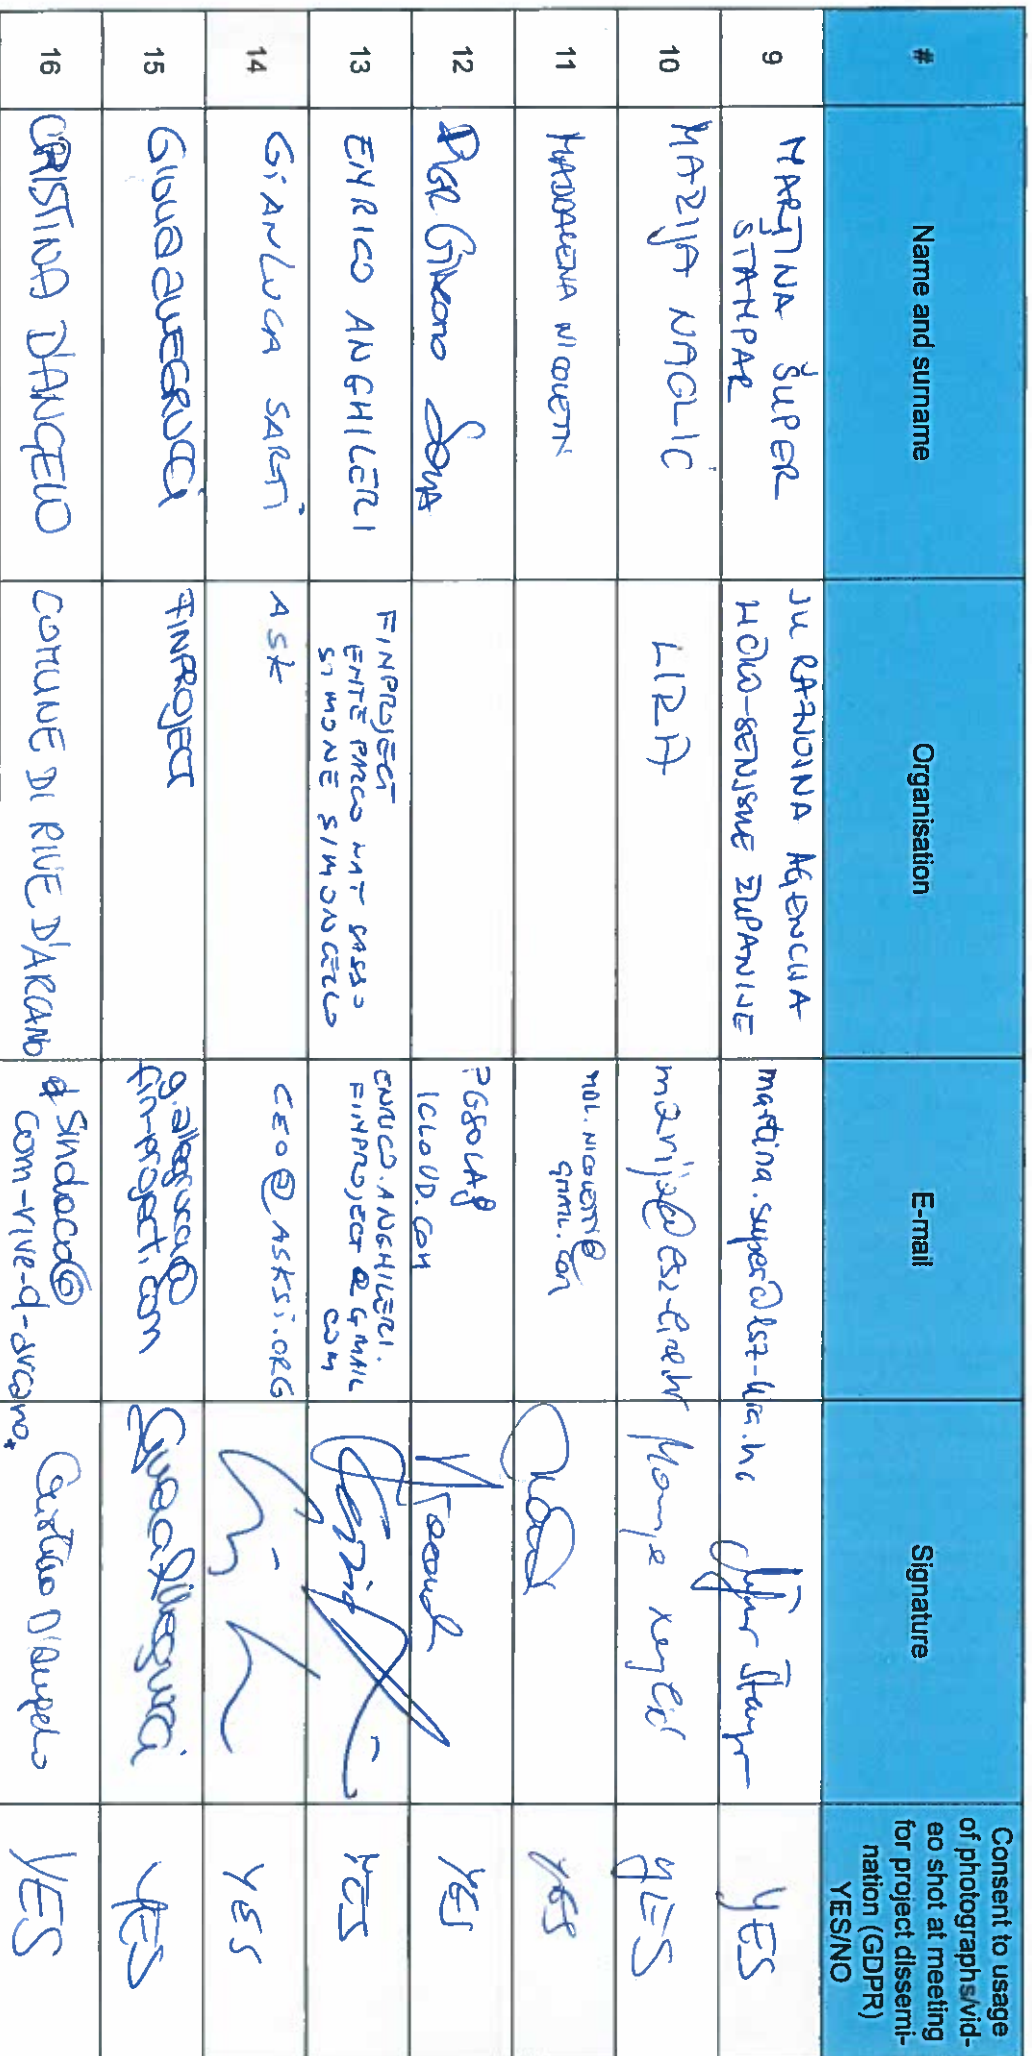 #
Name and surname
Organisation
E-mail
Signature
Consent to usage
of photographs/vid-
eo shot at meeting
for project dissemi-
nation (GDPR)
YES/NO
9
MARTINA ŠUPER
ŠTAMPAR
JU RAZVOJNA AGENCIJA
LIČKO-SENJSKE ŽUPANIJE
YES
10
MARIJA NAGLIĆ
LIRA
YES
11
MADDALENA NICOLETTI
MDL.NICOLETTI@
GMAIL.COM
YES
12
PIER GIACOMO SOLA
PGSOLA@
ICLOUD.COM
YES
13
ENRICO ANGHILERI
FINPROJECT
ENTE PARCO NAT SASSO
SIMONE SIMONCELLO
ENRICO.ANGHILERI.
FINPROJECT@GMAIL
COM
YES
14
GIANLUCA SARTI
ASK
CEO@ASKSI.ORG
YES
15
GIOVA ALLEGRUCCI
FINPROJECT
g.allegrucci@
fin-project.com
YES
16
CRISTINA D'ANGELO
COMUNE DI RIVE D'ARCANO
Sindaco@
com-rive-d-arcano.
Cristina D'Angelo
YES